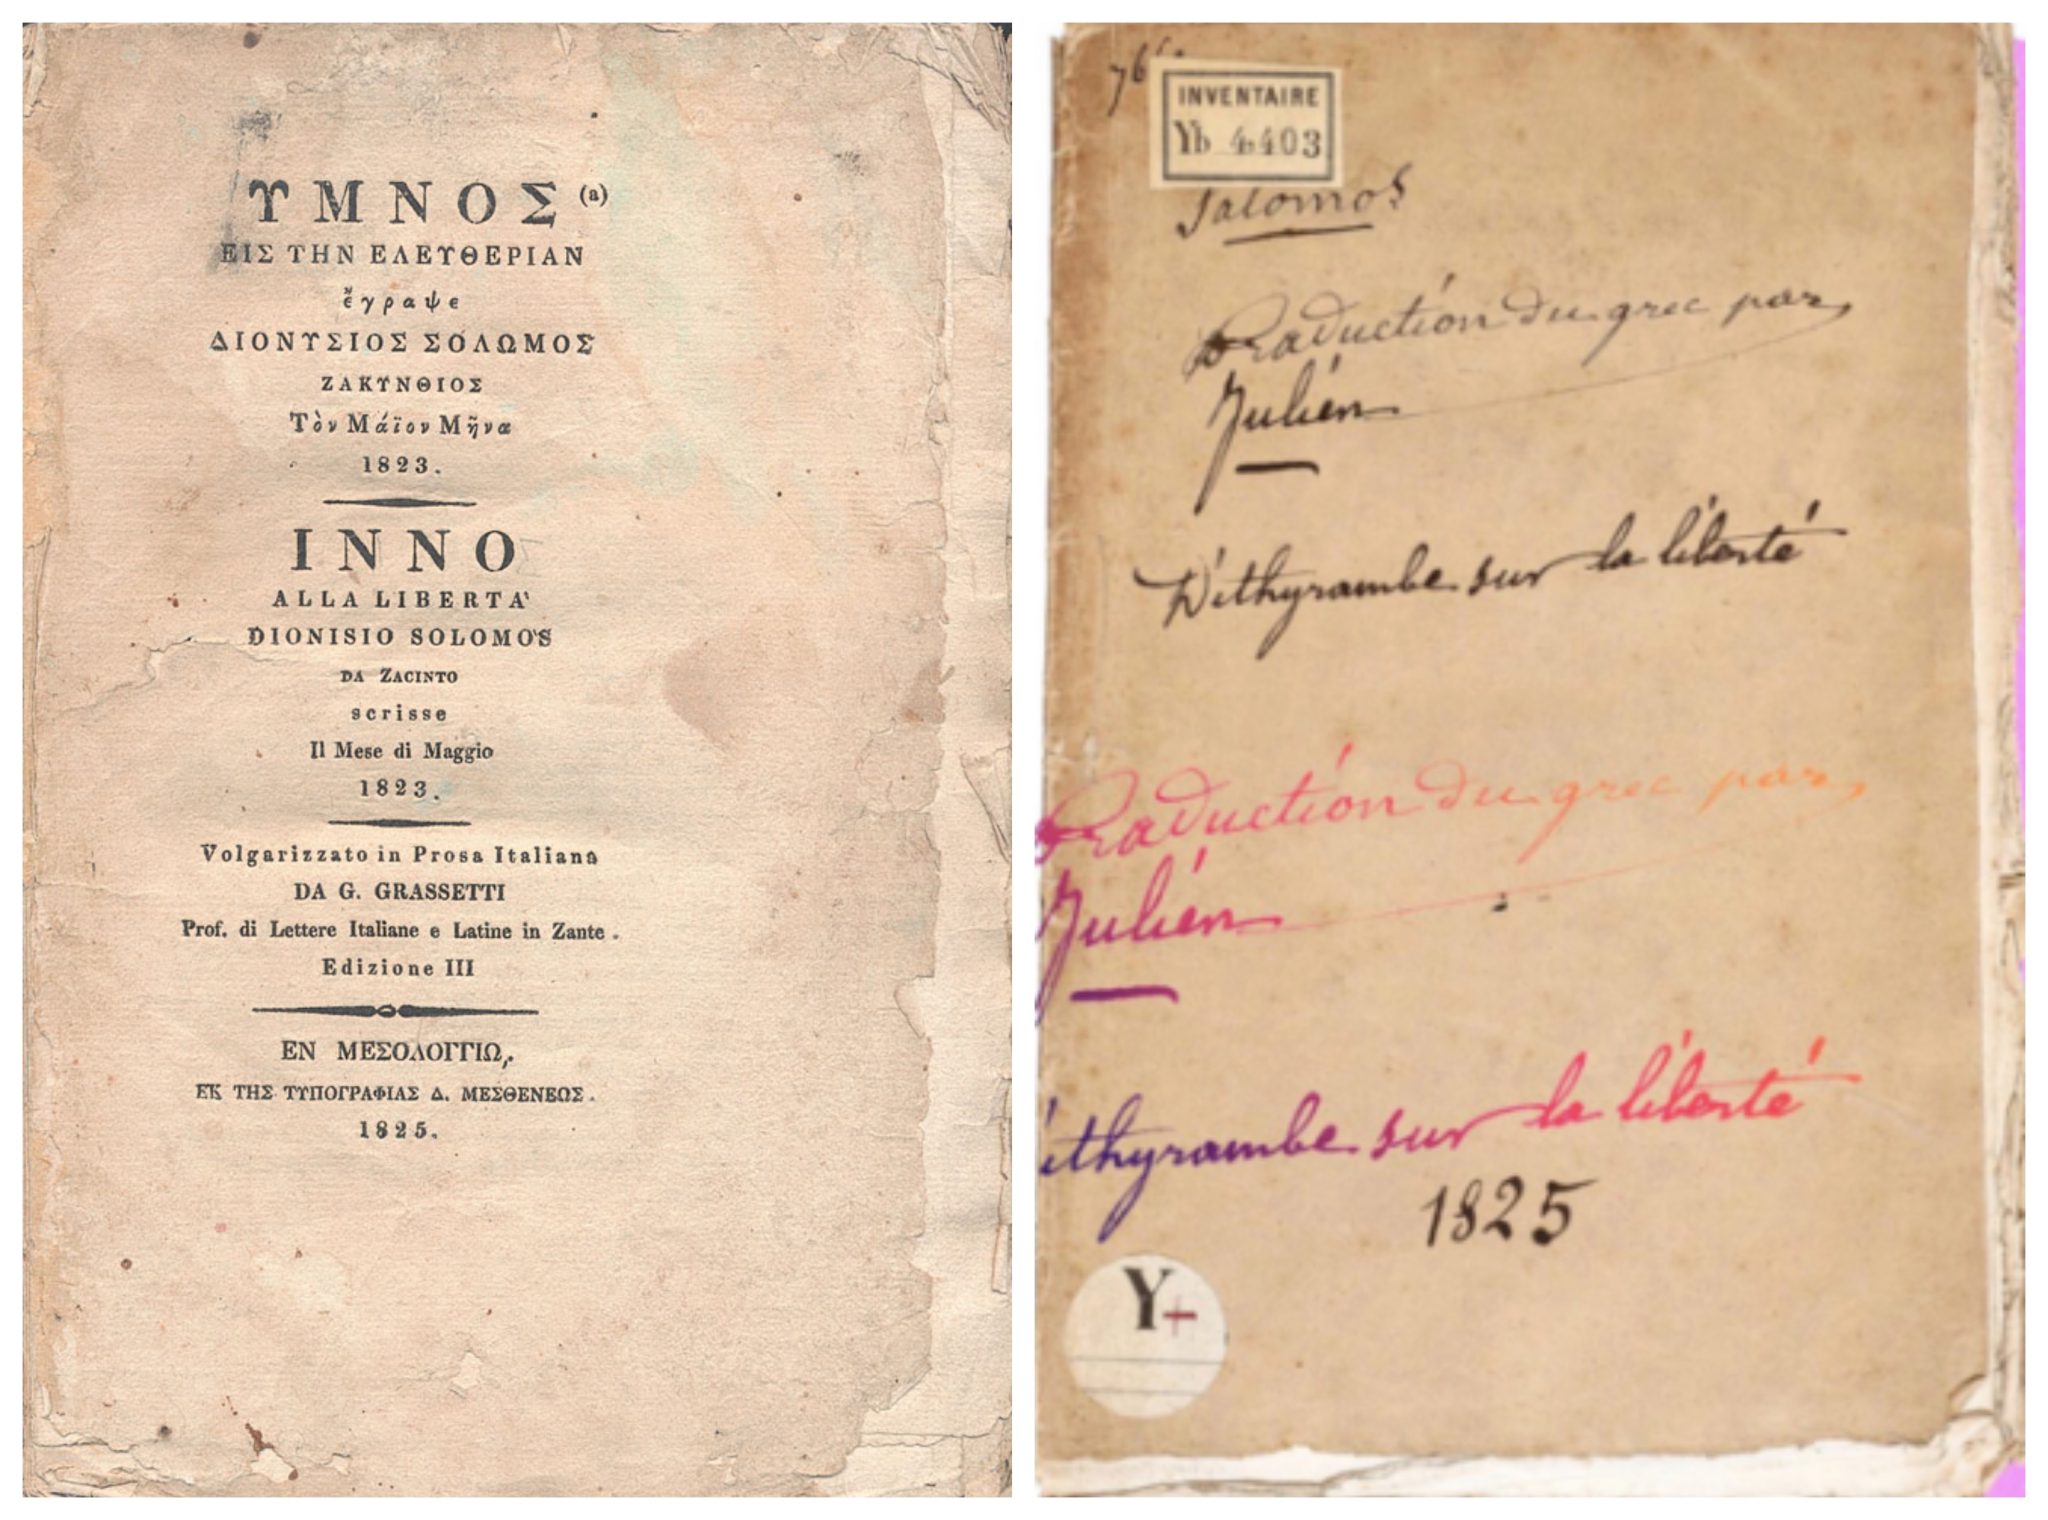 ΥΜΝΟΣ (a)
ΕΙΣ ΤΗΝ ΕΛΕΥΘΕΡΙΑΝ
ἔγραψε
ΔΙΟΝΥΣΙΟΣ ΣΟΛΩΜΟΣ
ΖΑΚΥΝΘΙΟΣ
Τὸν Μάϊον Μῆνα
1823.
INNO
ALLA LIBERTA'
DIONISIO SOLOMOS
DA ZACINTO
scrisse
Il Mese di Maggio
1823.
Volgarizzato in Prosa Italiana
DA G. GRASSETTI
Prof. di Lettere Italiane e Latine in Zante.
Edizione III
ΕΝ ΜΕΣΟΛΟΓΓΙΩ,.
ΕΚ ΤΗΣ ΤΥΠΟΓΡΑΦΙΑΣ Δ. ΜΕΣΘΕΝΕΩΣ.
1825.
INVENTAIRE
Yb 4403
Salomos
Traduction du grec par
Julien
Dithyrambe sur la liberté
Traduction du grec par
Julien
ithyrambe sur la liberté
1825
Y+